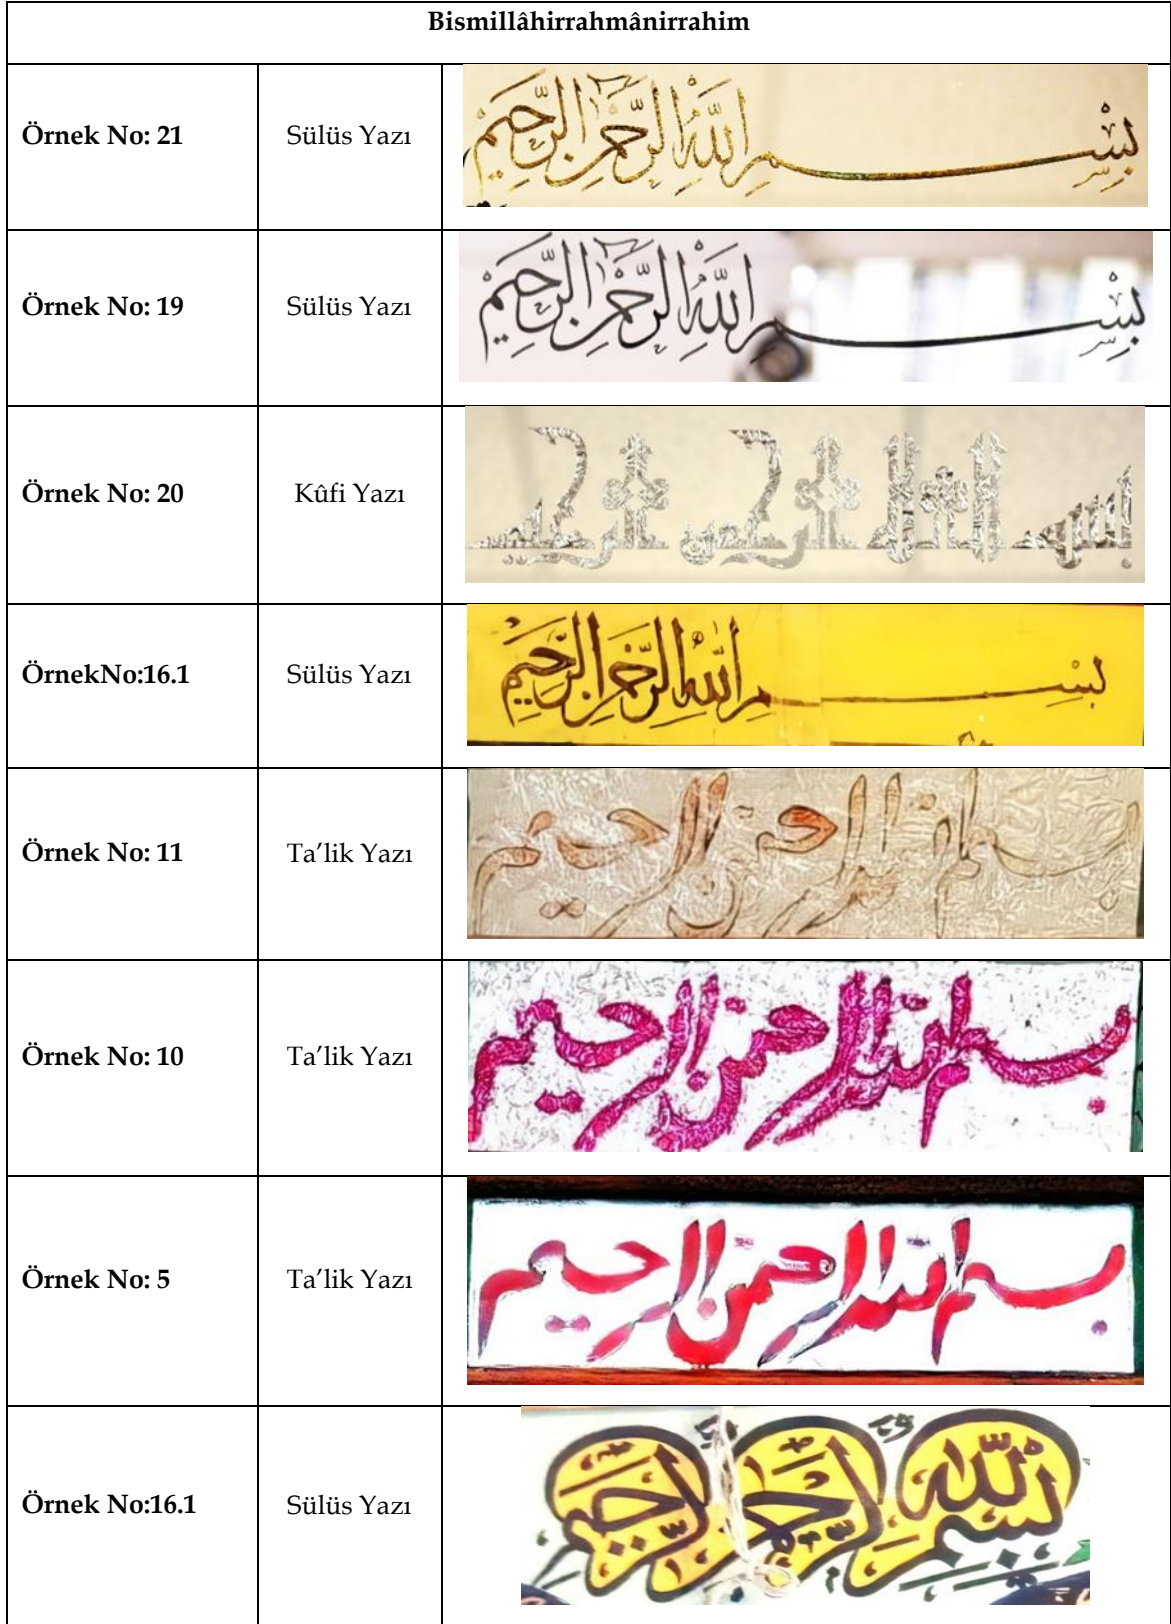 Bismillâhirrahmânirrahim
Örnek No: 21 Sülüs Yazı بِسْمِ اللّٰهِ الرَّحْمٰنِ الرَّحِيمِ
Örnek No: 19 Sülüs Yazı بِسْمِ اللّٰهِ الرَّحْمٰنِ الرَّحِيمِ
Örnek No: 20 Kûfi Yazı بسم الله الرحمن الرحيم
ÖrnekNo:16.1 Sülüs Yazı بِسْمِ اللّٰهِ الرَّحْمٰنِ الرَّحِيمِ
Örnek No: 11 Ta’lik Yazı بسم الله الرحمن الرحيم
Örnek No: 10 Ta’lik Yazı بسم الله الرحمن الرحيم
Örnek No: 5 Ta’lik Yazı بسم الله الرحمن الرحيم
Örnek No:16.1 Sülüs Yazı بِسْمِ اللّٰهِ الرَّحْمٰنِ الرَّحِيمِ